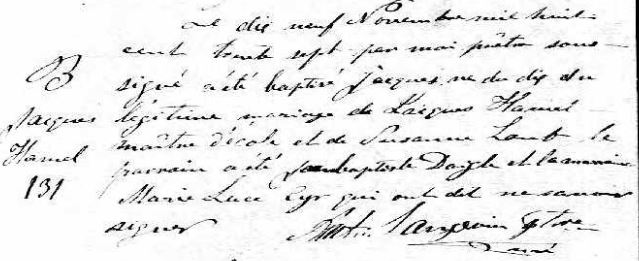 Le dix neuf Novembre mil huit
cent trente sept par moi prêtre sous-
B
signé a été baptisé Jacques, né du dix du
Jacques
légitime mariage de Jacques Hamel
Hamel
maître d'école et de Susanne Lamb le
131
parrain a été Jean baptiste Daigle et la marraine
Marie Luce Cyr qui ont dit ne savoir
signer
Langevin Ptre